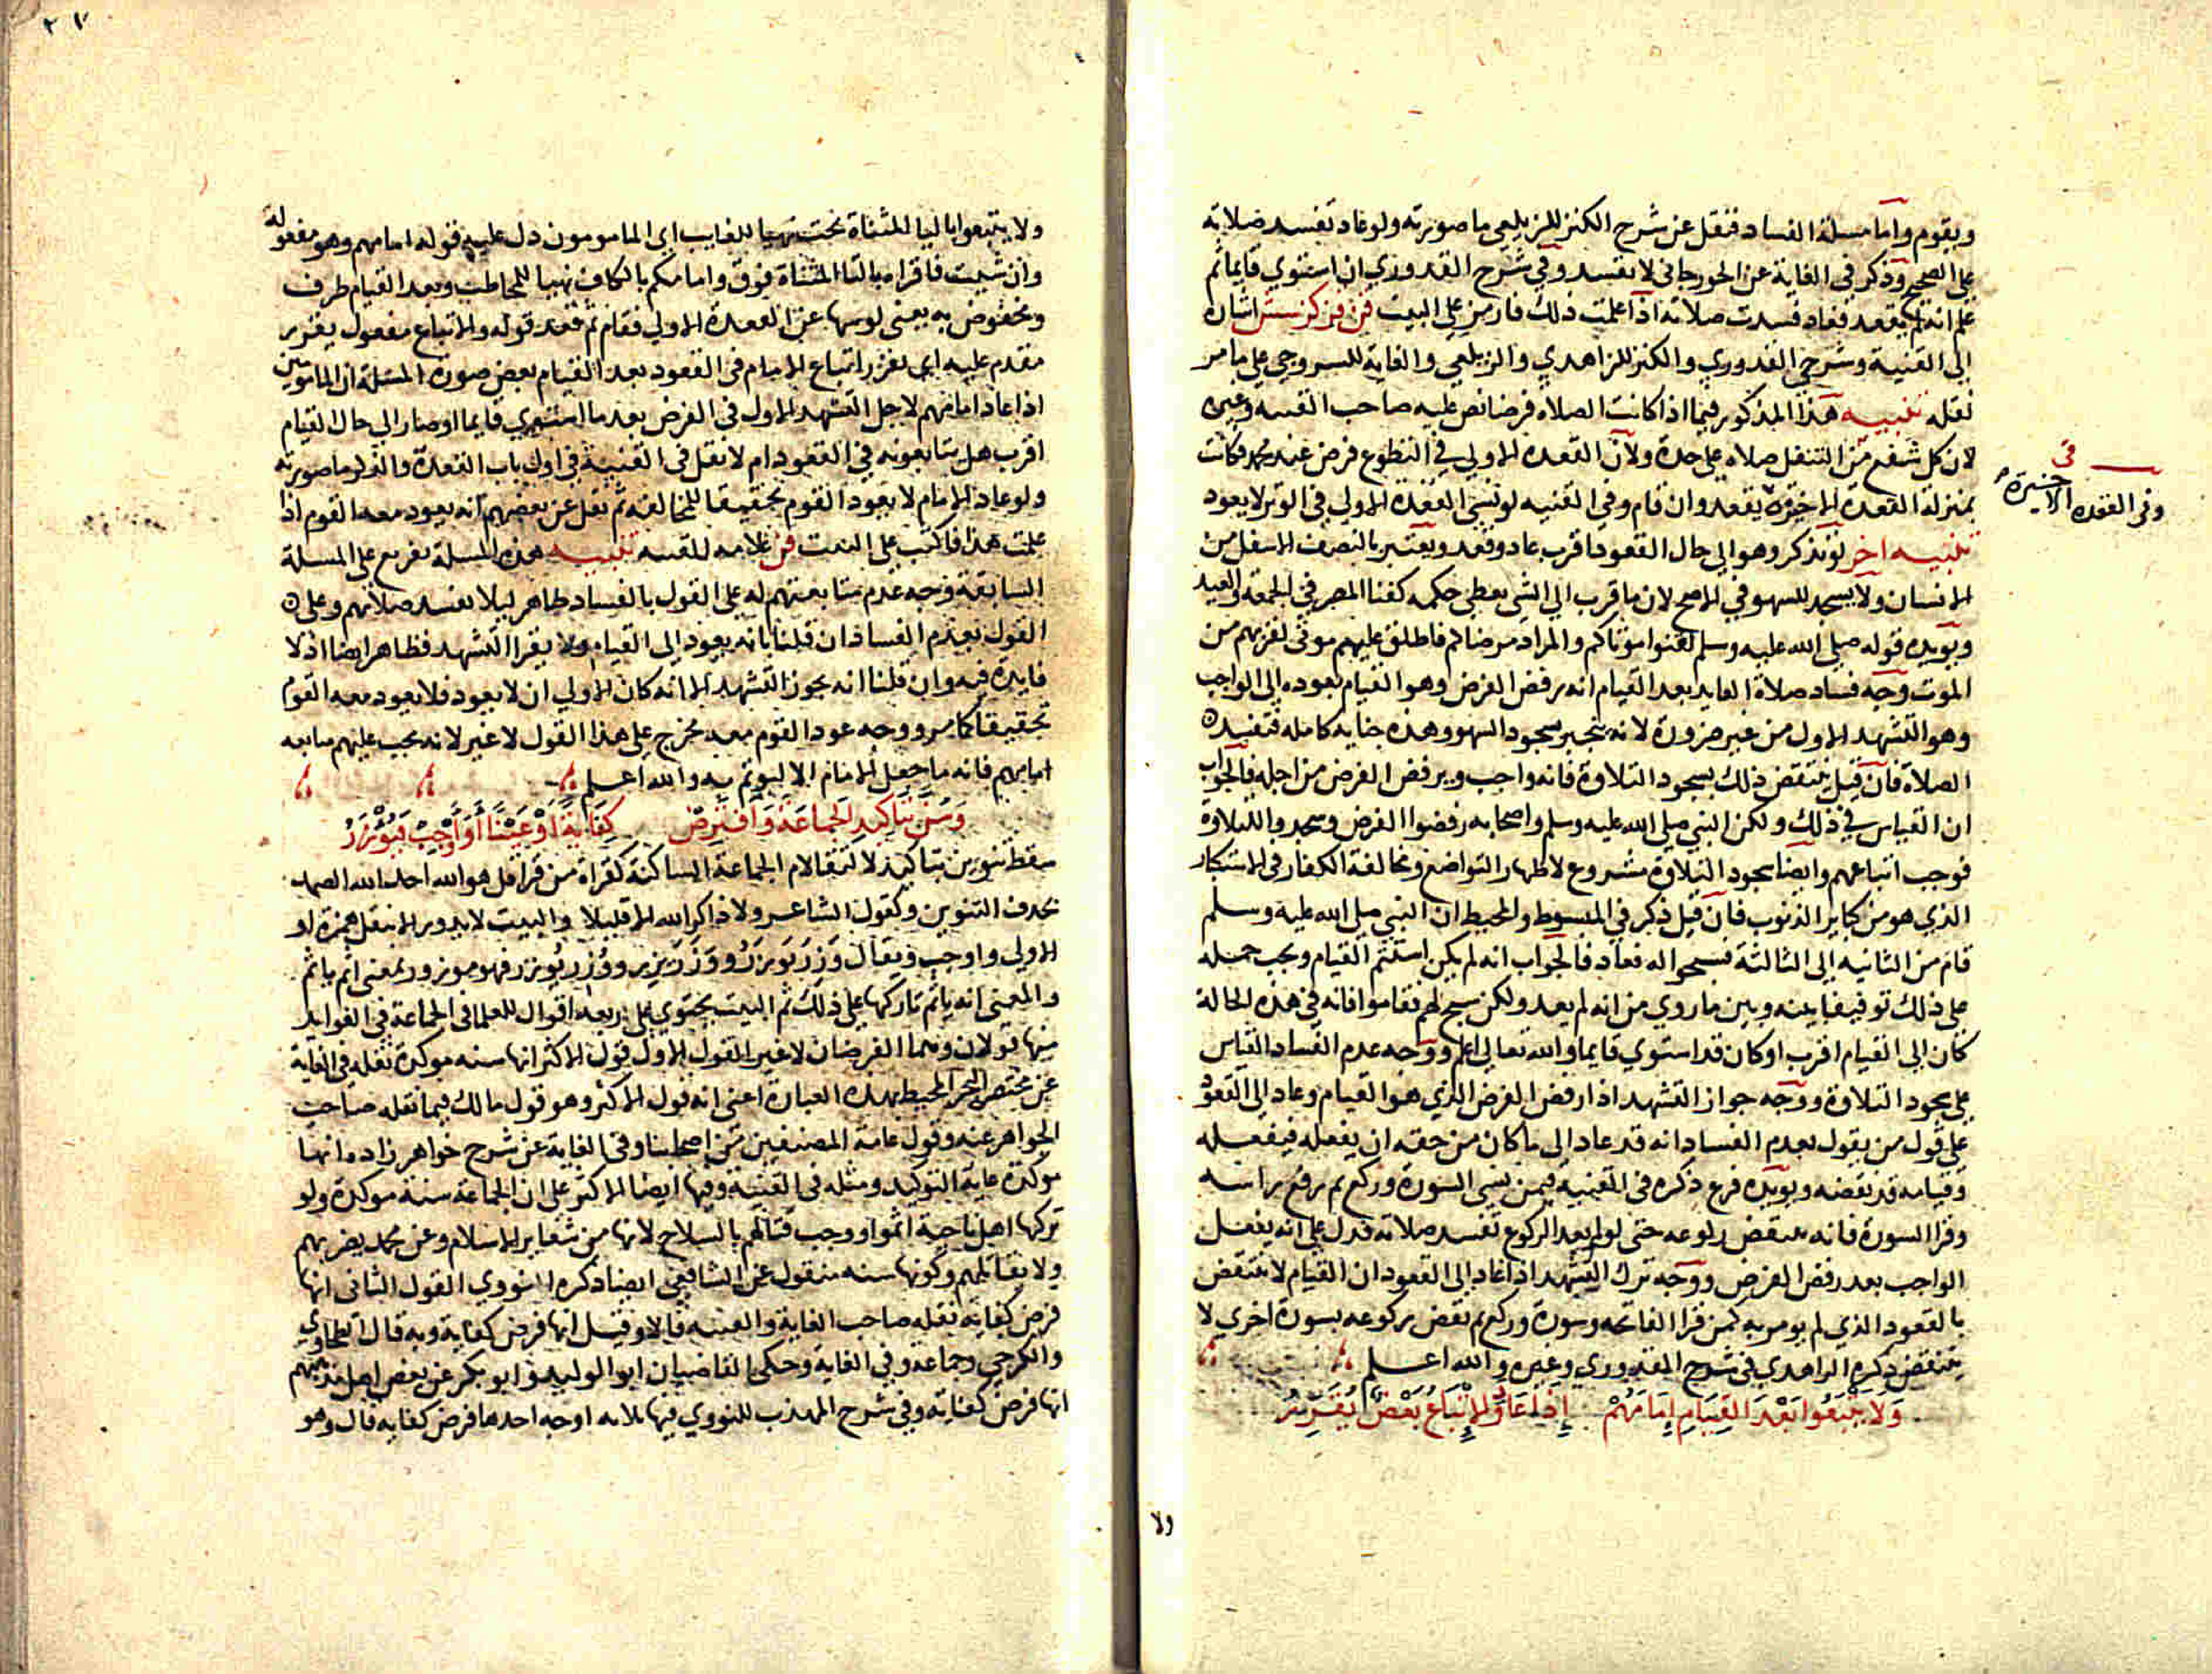 ويقوم واما مسلة الفساد فنقل عن شرح الكنز للزيلعي ما صورته ولو عاد تفسد صلاته
على الصحيح وذكر في الغاية عن الجورجاني لا تفسد وفي شرح القدوري ان استوي قايما ثم
علم انه لم يقعد فعاد فسدت صلاته اذا علمت ذلك فارمز على البيت اشارة
الى القنية وشرحي القدوري والكنز للزاهدي والزيلعي والغاية للسروجي على ما مر
نقله تنبيه هذا المذكور فيما اذا كانت الصلاه فرضا نص عليه صاحب القنيه وغيره
لان كل شفع من التنفل صلاه على حدة ولان القعدة الاولي في التطوع فرض عند محمد فكانت
بمنزلة القعدة الاخيرة يقعد وان قام وفي القنيه لو نسي القعدة الاولي في الوتر لا يعود
في
وفي القعدة الاخيرة
تنبيه اخر لو تذكر وهو الى حال القعود اقرب عاد وقعد ويعتبر بالنصف الاسفل من
الانسان ولا يسجد للسهو في الاصح لان ما قرب الى الشي يعطي حكمه كفنا المصر في الجمعة والعيد
ويويده قوله صلى الله عليه وسلم لقنوا موتاكم والمراد مرضاكم فاطلق عليهم موتي لقربهم من
الموت وجه فساد صلاة العايد بعد القيام انه رفض الفرض وهو القيام بعوده الى الواجب
وهو التشهد الاول من غير ضرورة لانه ينجبر بسجود السهو وهذه جنايه كامله فتفسد
الصلاة فان قيل ينتقض ذلك بسجود التلاوة فانه واجب ويرفض الفرض من اجله فالجواب
ان القياس في ذلك ولكن النبي صلى الله عليه وسلم واصحابه رفضوا الفرض وسجدوا للتلاوة
فوجب اتباعهم وايضا سجود التلاوة مشروع لاظهار التواضع ومخالفة الكفار في الاستكبار
الذي هو من كباير الذنوب فان قيل ذكر في المبسوط والمحيط ان النبي صلى الله عليه وسلم
قام من الثانيه الى الثالثة فسبحوا له فعاد فالجواب انه لم يكن استتم القيام ويجب حمله
على ذلك توفيقا بينه وبين ما روي من انه لم يعد ولكن سبح لهم فقاموا فانه في هذه الحالة
كان الى القيام اقرب او كان قد استوي قايما والله تعالى اعلم ووجه عدم الفساد القياس
على سجود التلاوة ووجه جواز التشهد اذا رفض الفرض الذي هو القيام وعاد الى القعود
على قول من يقول بعدم الفساد انه قد عاد الى ما كان من حقه ان يفعله فيفعله
وقيامه قد نقضه ويويده فرع ذكره في القنيه فيمن نسي السورة وركع ثم رفع راسه
وقرا السورة فانه ينتقض ركوعه حتى لو لم يعد الركوع تفسد صلاته فدل على انه يفعل
الواجب بعد رفض الفرض ووجه ترك التشهد اذا عاد الى القعود ان القيام لا ينتقض
بالقعود الذي لم يومر به كمن قرا الفاتحه وسورة وركع ثم نقض ركوعه بسورة اخري لا
ينتقض ذكره الزاهدي في شرح القدوري وغيره والله اعلم
وَلَا يَتْبَعُوا بَعْدَ القِيَامِ إِمَامَهُمْ إِذَا عَادَ وَالإِتْبَاعُ بَعْضٌ يُقَرِّرُ
ولا
ولا يتبعوا باليا المثناة تحت نهيا للغايب اى المامومون دل عليه قوله امامهم وهو مفعوله
وان شيت فاقراه بالتا المثناة فوق وامامكم بالكاف نهيا للمخاطب وبعد القيام ظرف
ومخفوض به يعني لو سها عن القعدة الاولي فقام ثم قعد قوله والاتباع مفعول يقرر
مقدم عليه اي يقرر اتباع الامام في القعود بعد القيام بعض صورة المسلة ان المامومين
اذا عاد امامهم لاجل التشهد الاول في الفرض بعد ما استوي قايما او صار الى حال القيام
اقرب هل يتابعونه في القعود ام لا نقل في القنية في اول باب القعدة والذكر ما صورته
ولو عاد الامام لا يعود القوم تحقيقا للمخالفة ثم نقل عن بعضهم انه يعود معه القوم اذا
علمت هذا فاكتب على البيت علامه للقنيه تنبيه هذه المسلة تفريع على المسلة
السابقة وجه عدم متابعتهم له على القول بالفساد ظاهر ليلا تفسد صلاتهم وعلى
القول بعدم الفساد ان قلنا بانه يعود الى القيام ولا يقرا التشهد فظاهر ايضا اذ لا
فايدة فيه وان قلنا انه يجوز التشهد الا انه كان الاولي ان لا يعود فلا يعود معه القوم
تحقيقا كما مر ووجه عود القوم معه مخرج على هذا القول لا غير لانه يجب عليهم متابعه
امامهم فانه ما جعل الامام الا ليوتم به والله اعلم
وَسُنَّ بِتَاكِيدِ الْجَمَاعَةِ وَافْتُرِضْ كِفَايَةً اَوْ عَيْنًا أَوَ اَوْجِبْ فَيُوْزَرُ
سقط تنوين بتاكيد لالتقا لام الجماعة الساكنة كقراة من قرا قل هو الله احد الله الصمد
بحذف التنوين وكقول الشاعر ولا ذاكر الله الا قليلا والبيت لا يدور الا بنقل همزة او
الاولي واوجب ويقال وَزَرَ يَوْزَرُ وَوَزَرَ يَزِر ووُزِر يُوزر فهو موزور بمعني اثم ياثم
والمعني انه ياثم تاركها على ذلك ثم البيت يحتوي على اربعة اقوال للعلما في الجماعة في الفوايد
منها قولان وهما الفرضان لا غير القول الاول قول الاكثر انها سنه موكدة نقله في الغاية
عن مختصر البحر المحيط بهذه العبارة اعني انه قول الاكثر وهو قول مالك فيما نقله صاحب
الجواهر عنه وقول عامة المصنفين من اصحابنا وفي الغاية عن شرح خواهر زاده انها
موكدة غاية التوكيد ومثله في القنية وفيها ايضا الاكثر على ان الجماعة سنة موكدة ولو
تركها اهل ناحية اثموا ووجب قتالهم بالسلاح لانها من شعاير الاسلام وعن محمد يضربهم
ولا يقاتلهم وكونها سنه منقول عن الشافعي ايضا ذكره النووي القول الثاني انها
فرض كفايه نقله صاحب الغاية والقنيه قالا وقيل انها فرض كفاية وبه قال الطحاوي
والكرخي وجماعة وفي الغاية وحكى القاضيان ابو الوليد وابو بكر عن بعض اهل مذهبهم
انها فرض كفاية وفي شرح المهذب للنووي فيها ثلاثه اوجه احدها فرض كفايه قال وهو